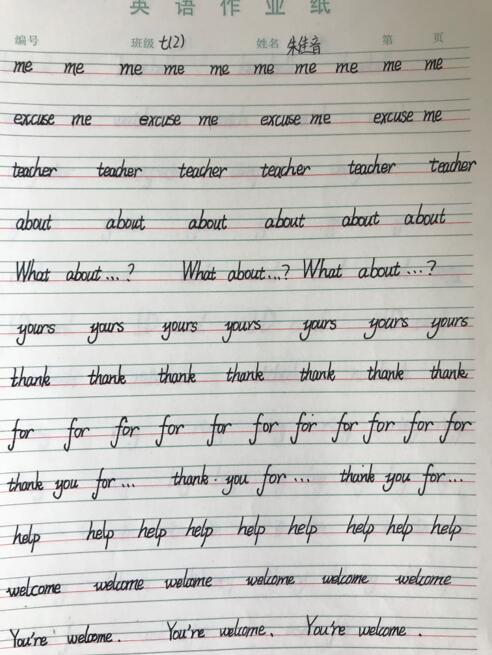 英语作业纸
编号 班级 七(2) 姓名 朱佳音 第 页
me me me me me me me me me me
excuse me excuse me excuse me excuse me
teacher teacher teacher teacher teacher teacher
about about about about about about
What about...? What about...? What about...?
yours yours yours yours yours yours yours
thank thank thank thank thank thank thank
for for for for for for for for for for for
thank you for... thank you for... thank you for...
help help help help help help help help help
welcome welcome welcome welcome welcome welcome
You're welcome. You're welcome. You're welcome.